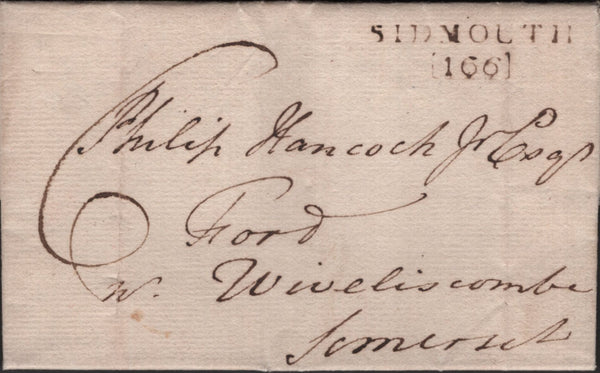 SIDMOUTH
[166]
6
Philip Hancock Jr Esqr
Ford
nr. Wiveliscombe
Somerset